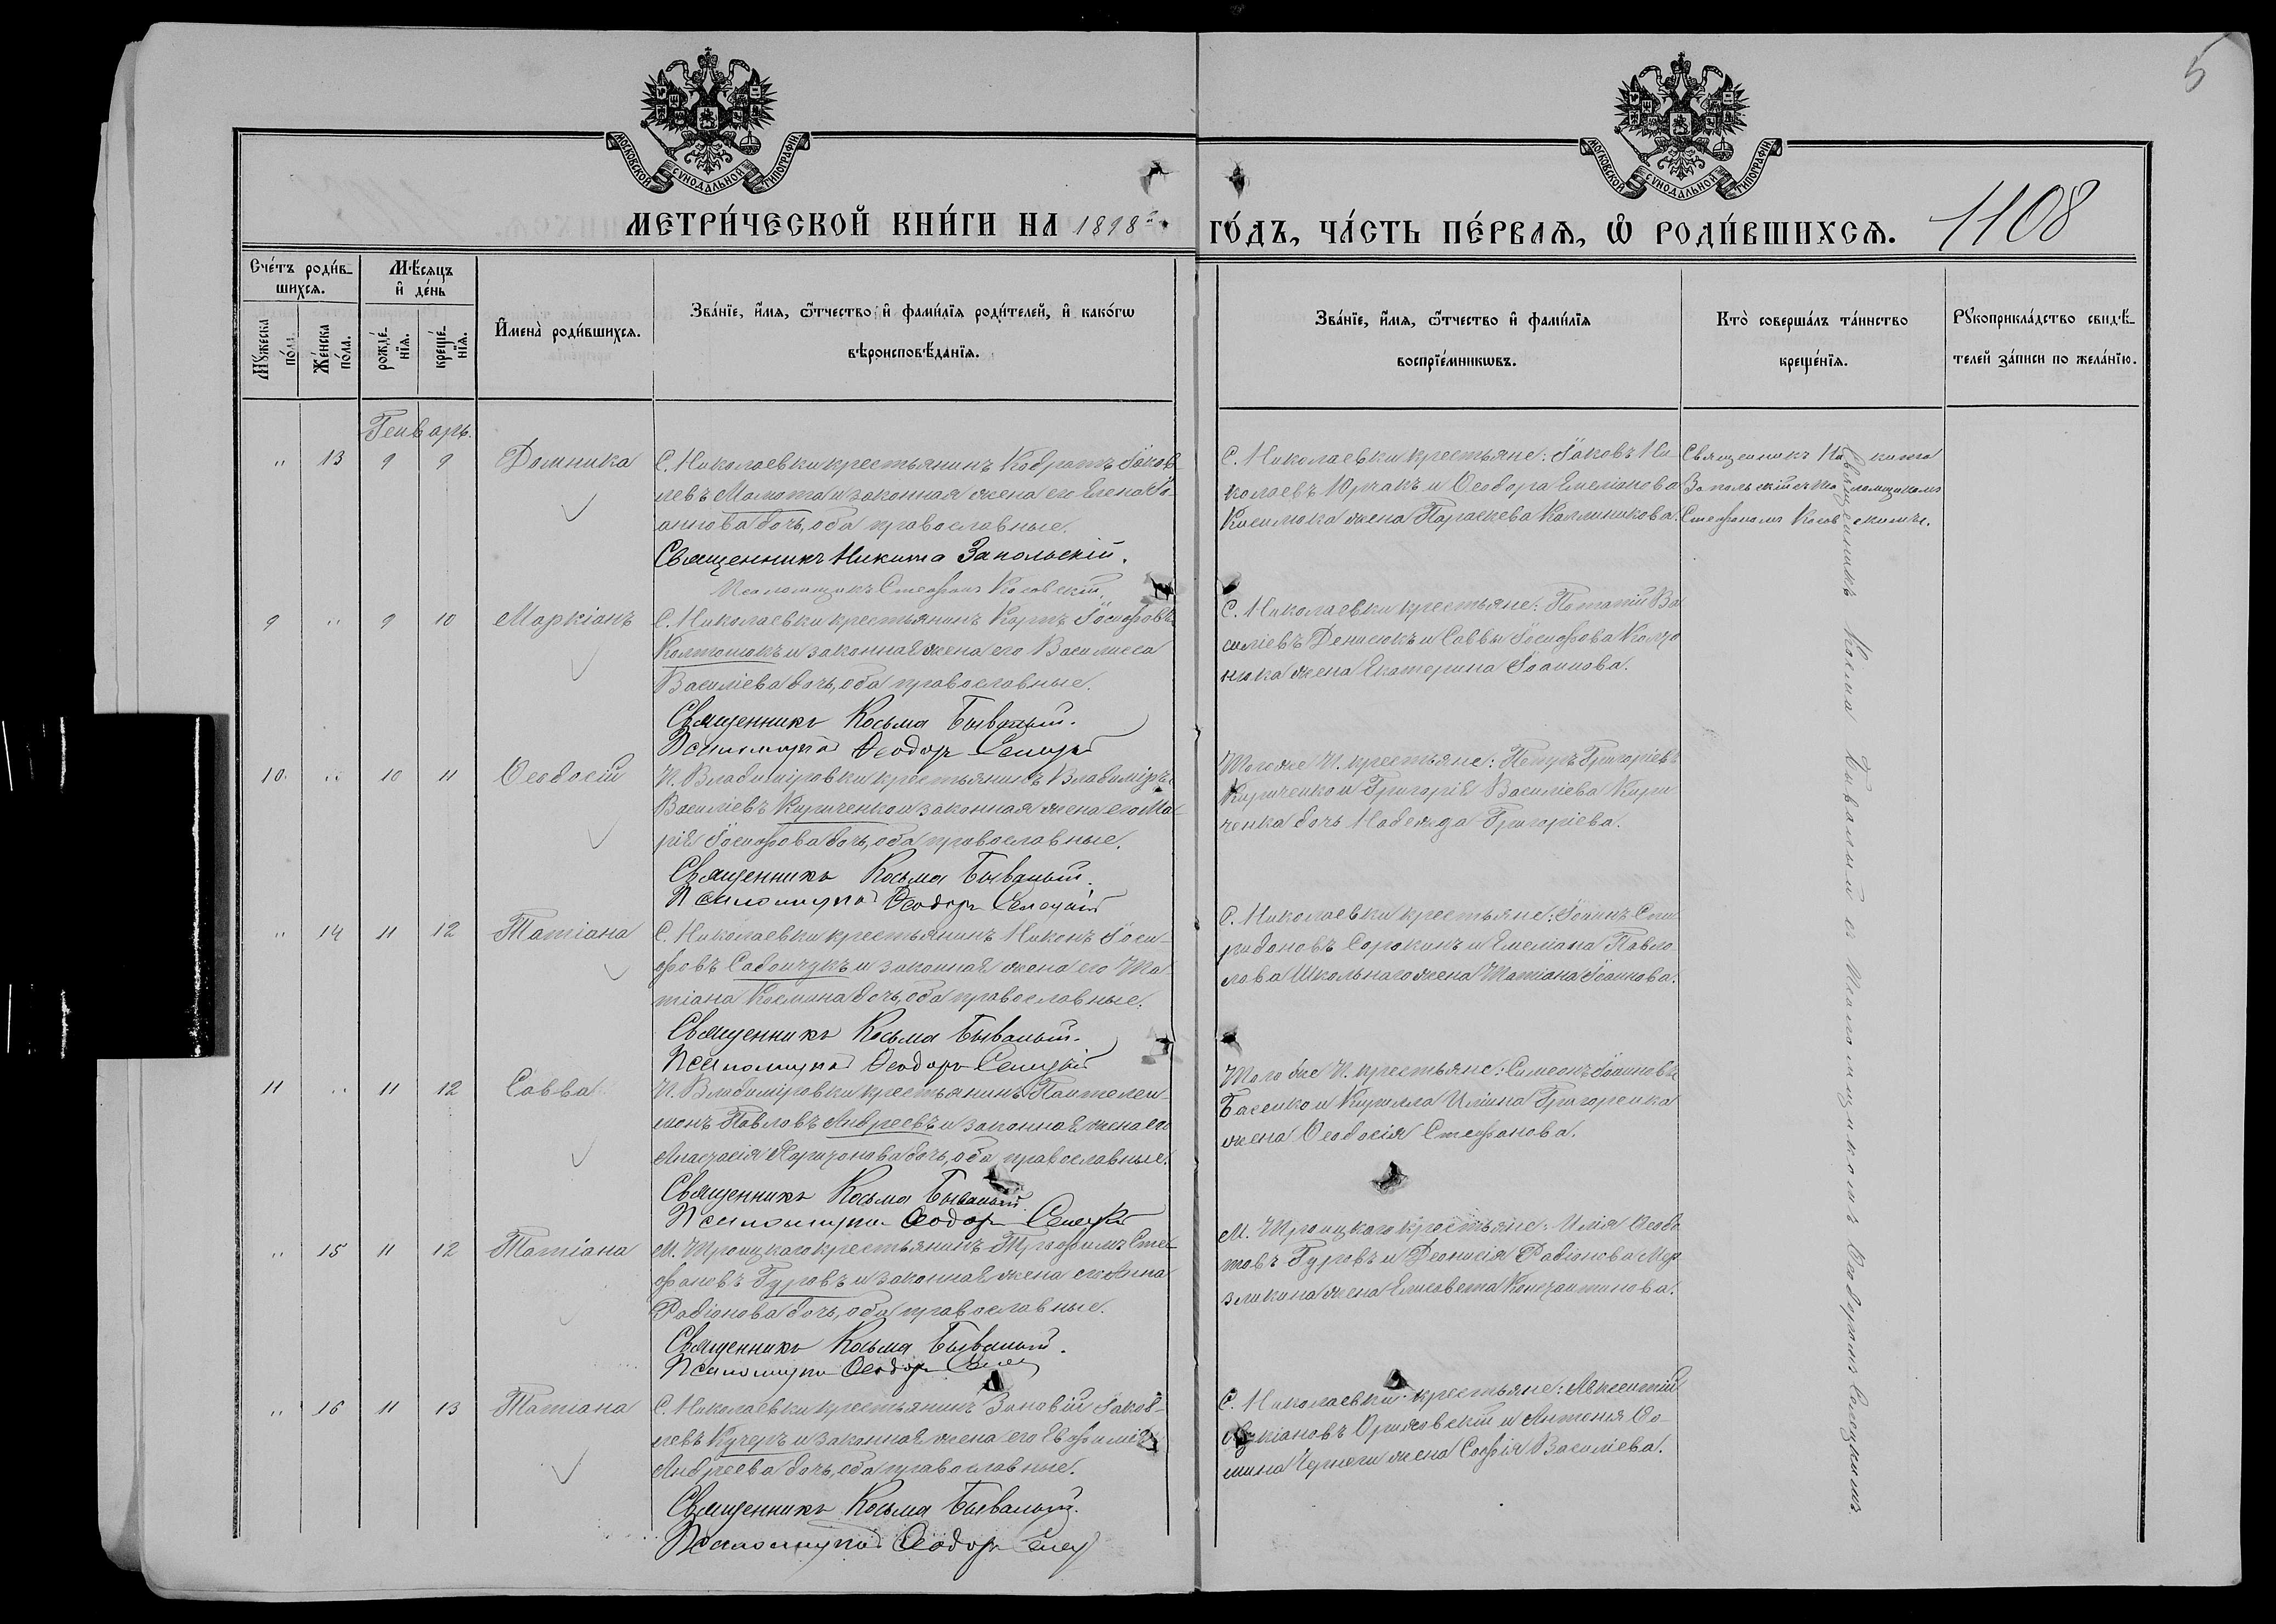 5
МОСКОВСКОЙ СУНОДАЛЬНОЙ ТИПОГРАФІИ
МОСКОВСКОЙ СУНОДАЛЬНОЙ ТИПОГРАФІИ
МЕТРИ́ЧЕСКОЙ КНИ́ГИ НА 1898 г. ГО́ДЪ, ЧА́СТЬ ПЕ́РВАѦ, Ѡ РОДИ́ВШИХСѦ. 1108
Сче́тъ роди́в-
шихсѧ.
Мѣ́сѧцъ
и҆ де́нь
Мꙋ́жеска
по́ла.
Же́нска
по́ла.
рожде́-
нїѧ.
креще́-
нїѧ.
И҆мена̀ роди́вшихсѧ.
Зва́нїе, и҆́мѧ, ѻ҆́тчество и҆ фами́лїѧ роди́телей, и҆ како́гѡ
вѣроисповѣ́данїѧ.
Зва́нїе, и҆́мѧ, ѻ҆́тчество и҆ фами́лїѧ
воспрїе́мникѡвъ.
Кто̀ соверша́лъ та́инство
креще́нїѧ.
Рꙋкоприкла́дство свидѣ́-
телей за́писи по жела́нїю.
Генварь.
" 13 9 9 Домника
С. Николаевки крестьянинъ Кодратъ Іаков-
левъ Мамота и законная жена его Елена Іо-
аннова дочь, оба православные.
Священникъ Никита Запольскій.
Псаломщикъ Стефанъ Косовскій
С. Николаевки крестьяне: Іаковъ Ни
колаевъ Юрчакъ и Ѳеодора Емеліанова
жена Параскева Каллиникова.
Священникъ Никита
Запольскій съ псаломщикомъ
Стефаномъ Косовскимъ.
9 " 9 10 Маркіанъ
С. Николаевки крестьянинъ Карпъ Іосифовъ
и законная жена его Василиса
Василіева дочь, оба православные.
Священникъ Косьма Бывалый.
Псаломщикъ Ѳеодоръ Селецкій
С. Николаевки крестьяне: Потапій Ва
силіевъ Денисюкъ и Саввы Іосифова
жена Екатерина Іоаннова.
10 " 10 11 Ѳеодосій
П. Владиміровки крестьянинъ Владиміръ
Василіевъ Кириченко и законная жена его Ма-
рія Іосифова дочь, оба православные.
Священникъ Косьма Бывалый.
Псаломщикъ Ѳеодоръ Селецкій
Того же П. крестьяне: Петръ Григоріевъ
Кириченко и Григорія Василіева Кири
ченка дочь Надежда Григоріева.
" 14 11 12 Татіана
С. Николаевки крестьянинъ Никонъ Іоси-
фовъ Савончукъ и законная жена его Та
тіана Космина дочь, оба православные.
Священникъ Косьма Бывалый.
Псаломщикъ Ѳеодоръ Селецкій
С. Николаевки крестьяне: Іоаннъ Спи
ридоновъ Сорокинъ и Емеліана Павло
лова Школьнаго жена Татіана Іоаннова.
11 " 11 12 Савва
П. Владиміровки крестьянинъ Пантелеи
монъ Павловъ Андреевъ и законная жена его
Анастасія Харитонова дочь, оба православные.
Священникъ Косьма Бывалый
Псаломщикъ Ѳеодоръ Селецкій
Того же П. крестьяне: Симеонъ Іоанновъ
Басенко и Кирилла Иліина Григоренка
жена Ѳеодосія Стефанова.
" 15 11 12 Татіана
М. Троицкаго крестьянинъ Трофимъ Сте-
фановъ Гуровъ и законная жена его Анна
Радіонова дочь, оба православные.
Священникъ Косьма Бывалый.
Псаломщикъ Ѳеодоръ
М. Троицкаго крестьяне: Илія Ѳеодо
товъ Гуровъ и Діонисія Радіонова Мер
зликина жена Елисавета Константинова.
" 16 11 13 Татіана
С. Николаевки крестьянинъ Зиновій Іаков-
левъ Кучеръ и законная жена его Евфимія
Андреева дочь, оба православные.
Священникъ Косьма Бывалый.
Псаломщикъ Ѳеодоръ Селец
С. Николаевки крестьяне: Авксентій
и Антонія Ѳо-
мина жена Софія Василіева.
Священникъ Косма Бывалый съ Псаломщикомъ Ѳеодоромъ Селецкимъ